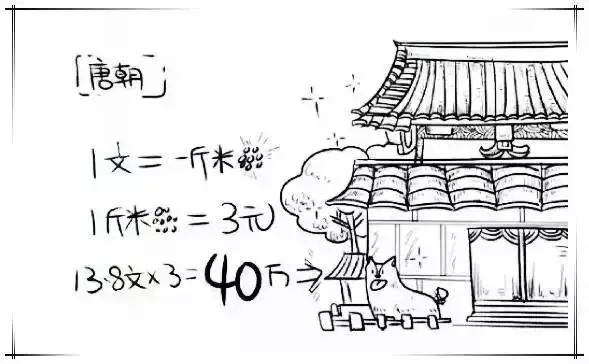 「唐朝」
1文=一斤米
1斤米=3元
13.8文×3=40万